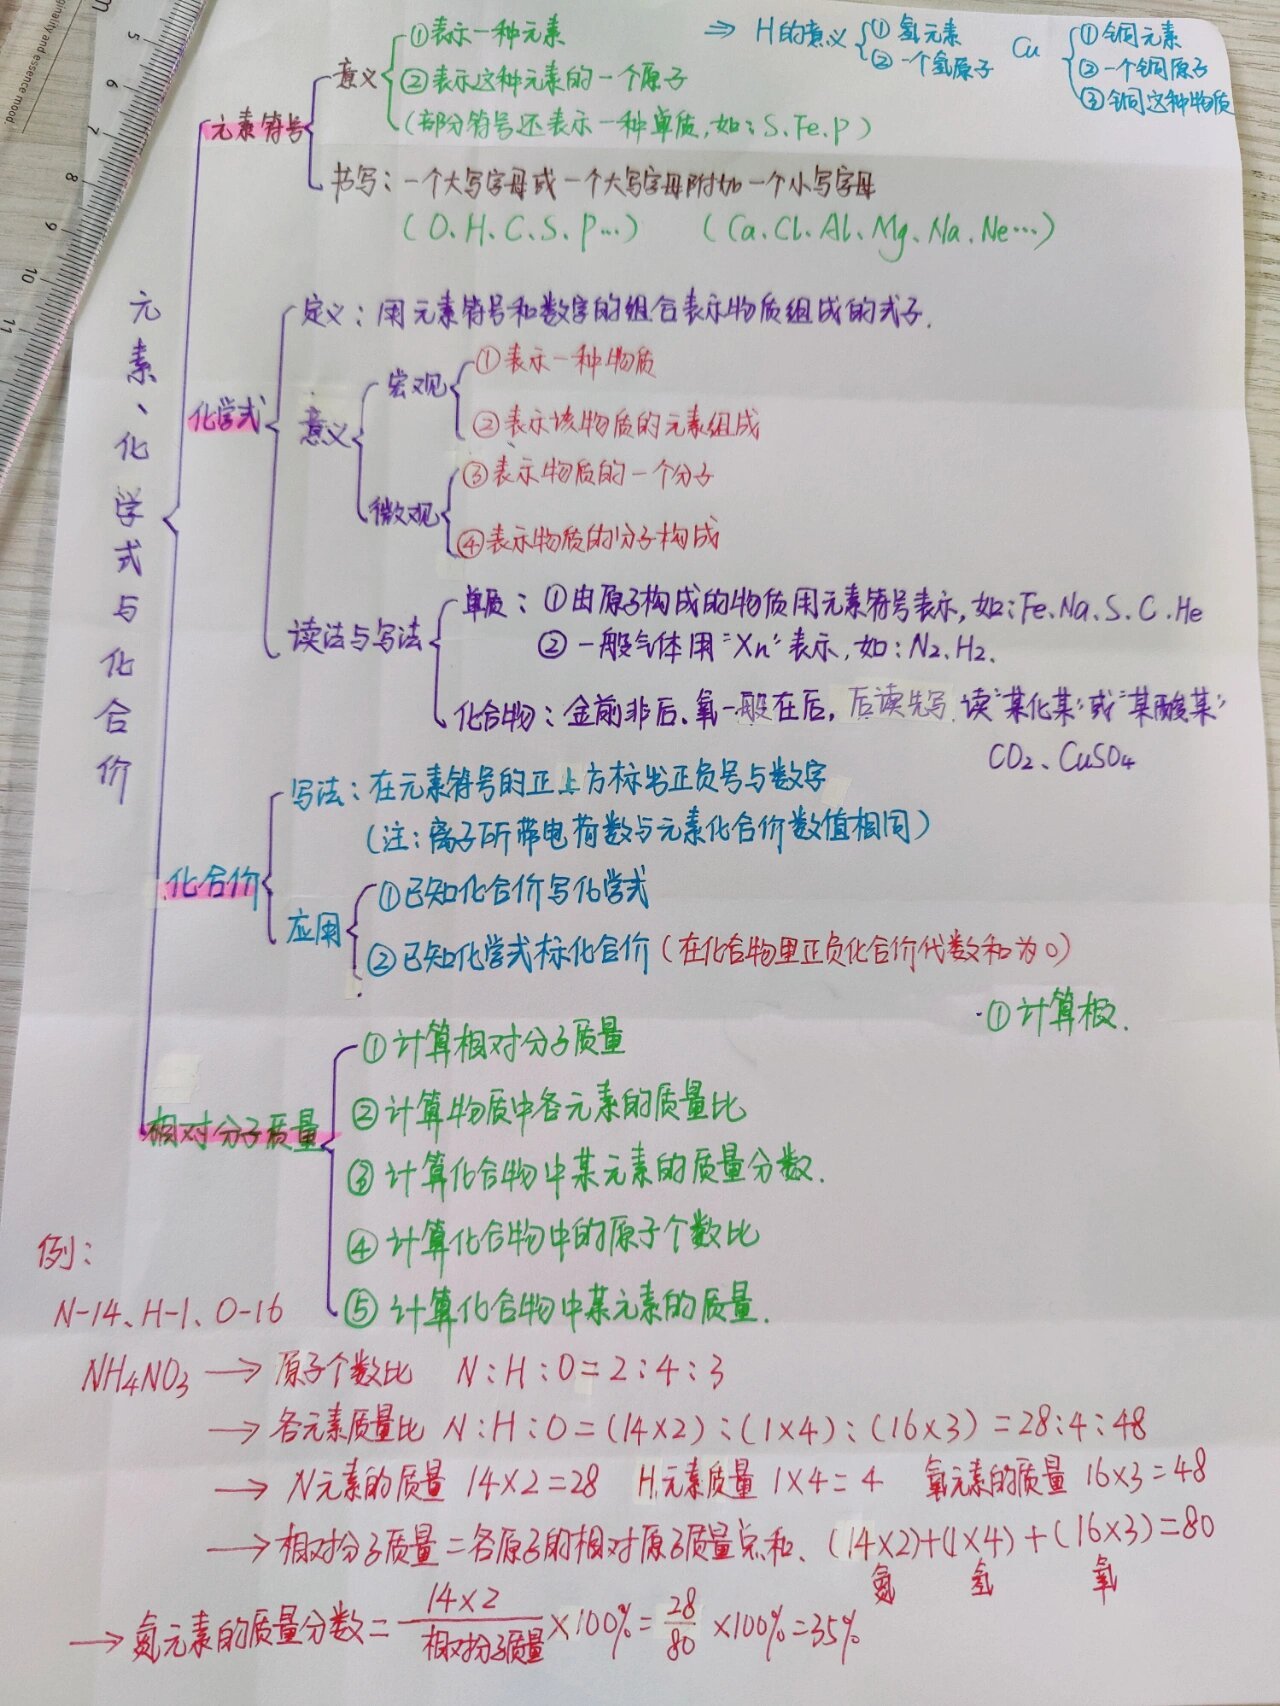 originality and essence mood
5 6 7 8 9 10 11
元素、化学式与化合价
元素符号
意义
①表示一种元素
②表示这种元素的一个原子
(部分符号还表示一种单质,如:S.Fe.P)
⇒ H的意义 ①氢元素
②一个氢原子
Cu ①铜元素
②一个铜原子
③铜这种物质
书写:一个大写字母或一个大写字母附加一个小写字母
(O.H.C.S.P...) (Ca.Cl.Al.Mg.Na.Ne...)
化学式
定义:用元素符号和数字的组合表示物质组成的式子.
意义
宏观
①表示一种物质
②表示该物质的元素组成
微观
③表示物质的一个分子
④表示物质的分子构成
读法与写法
单质:①由原子构成的物质用元素符号表示,如:Fe.Na.S.C.He
②一般气体用"Xn"表示,如:N2.H2.
化合物:金前非后、氧一般在后,后读先写.读"某化某"或"某酸某"
CO2、CuSO4
化合价
写法:在元素符号的正上方标出正负号与数字
(注:离子所带电荷数与元素化合价数值相同)
应用
①已知化合价写化学式
②已知化学式标化合价(在化合物里正负化合价代数和为0)
·①计算相.
相对分子质量
①计算相对分子质量
②计算物质中各元素的质量比
③计算化合物中某元素的质量分数.
④计算化合物中的原子个数比
⑤计算化合物中某元素的质量.
例:
N-14、H-1、O-16
NH4NO3 → 原子个数比 N:H:O=2:4:3
→ 各元素质量比 N:H:O=(14×2):(1×4):(16×3)=28:4:48
→ N元素的质量 14×2=28 H元素质量 1×4=4 氧元素的质量 16×3=48
→ 相对分子质量=各原子的相对原子质量总和、(14×2)+(1×4)+(16×3)=80
氮 氢 氧
→ 氮元素的质量分数= 14×2 / 相对分子质量 ×100%= 28/80 ×100%=35%